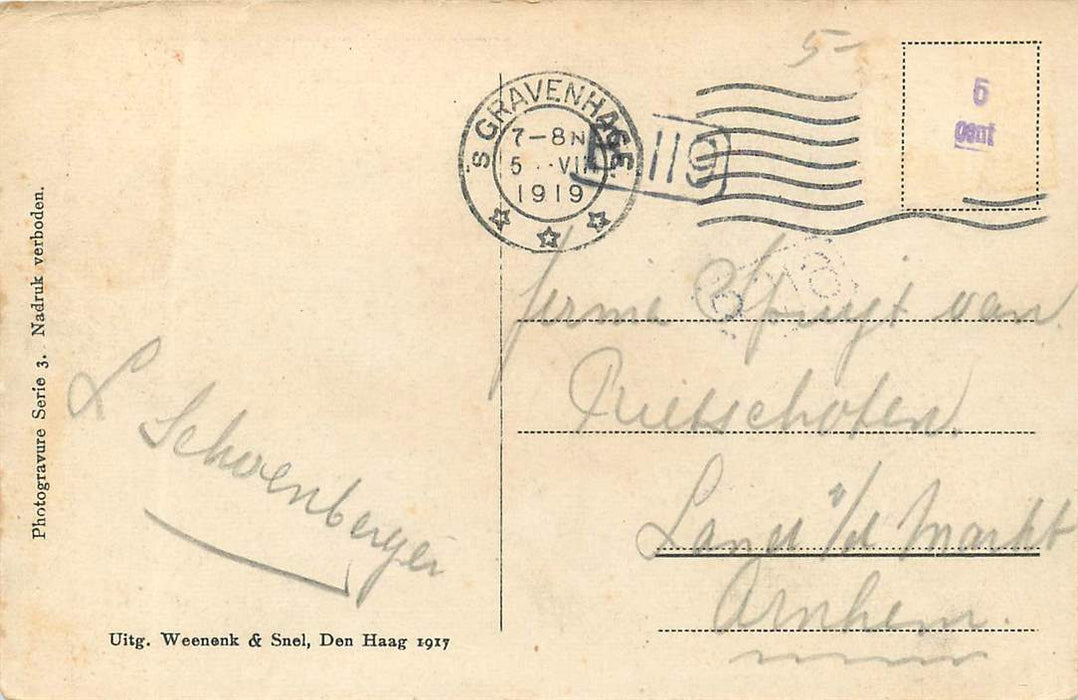 Photogravure Serie 3. Nadruk verboden.
5-
5
cent
's GRAVENHAGE
7-8N
5 VII
1919
119
firma Spruyt van
Rietschoten
Land v/d Markt
Arnhem.
L Schoenberger
Uitg. Weenenk & Snel, Den Haag 1917